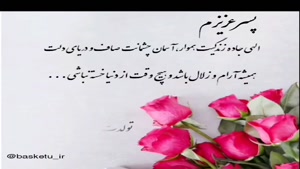 پسر عزیزم
الهی جاده زندگیت هموار، آسمان چشمانت صاف و دریای دلت
همیشه آرام و زلال باشد و هیچ وقت از دنیا خسته نباشی...
تولدت
@basketu_ir